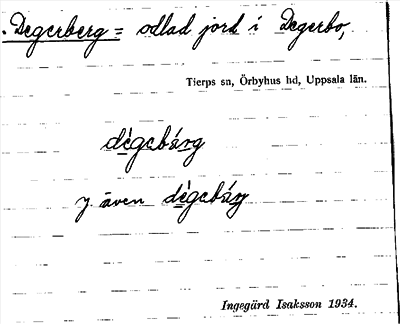 . Degerberg = odlad jord i Degerbo,
Tierps sn, Örbyhus hd, Uppsala län.
dègebárg
y. även dègebáry
Ingegärd Isaksson 1934.